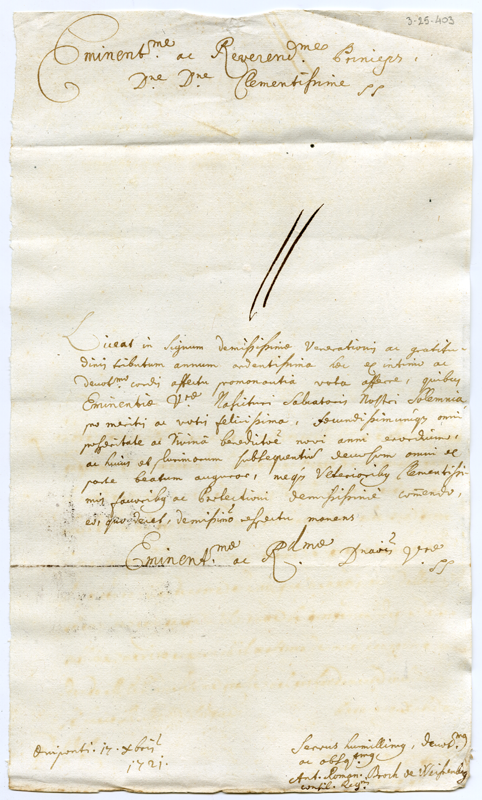 3-25-403
Eminent.me ac Reverend.me Princeps,
Dne Dne Clementissime
Liceat in signum demississimæ Venerationis ac gratitu-
dinis tributum annuum ardentissima hæc ex intimo ac
devot.mo cordis affectu promonantia vota afferre, quibus
Eminentiæ Vræ Nascituri Salvatoris Nostri Solemnia
pro meritis ac votis felicissima, secundissimumq3 omni
prosperitate ac Numinis benedictne novi anni exordium,
ac hujus et plurimorum subsequentium decursum omni ex
parte beatum auguror, meq3 Ulterioribus Clementissi-
mis favoribus ac Protectioni demississime comendo
eo, quo decet, demississ.o respectu manens
Eminent.me ac R.dme Dnaõis Vræ
Oeniponti. 17. Xbris
1721.
Servus humillimus, devot.mus
ac obseq.mus
Ant. Roman.
consil. Reg.